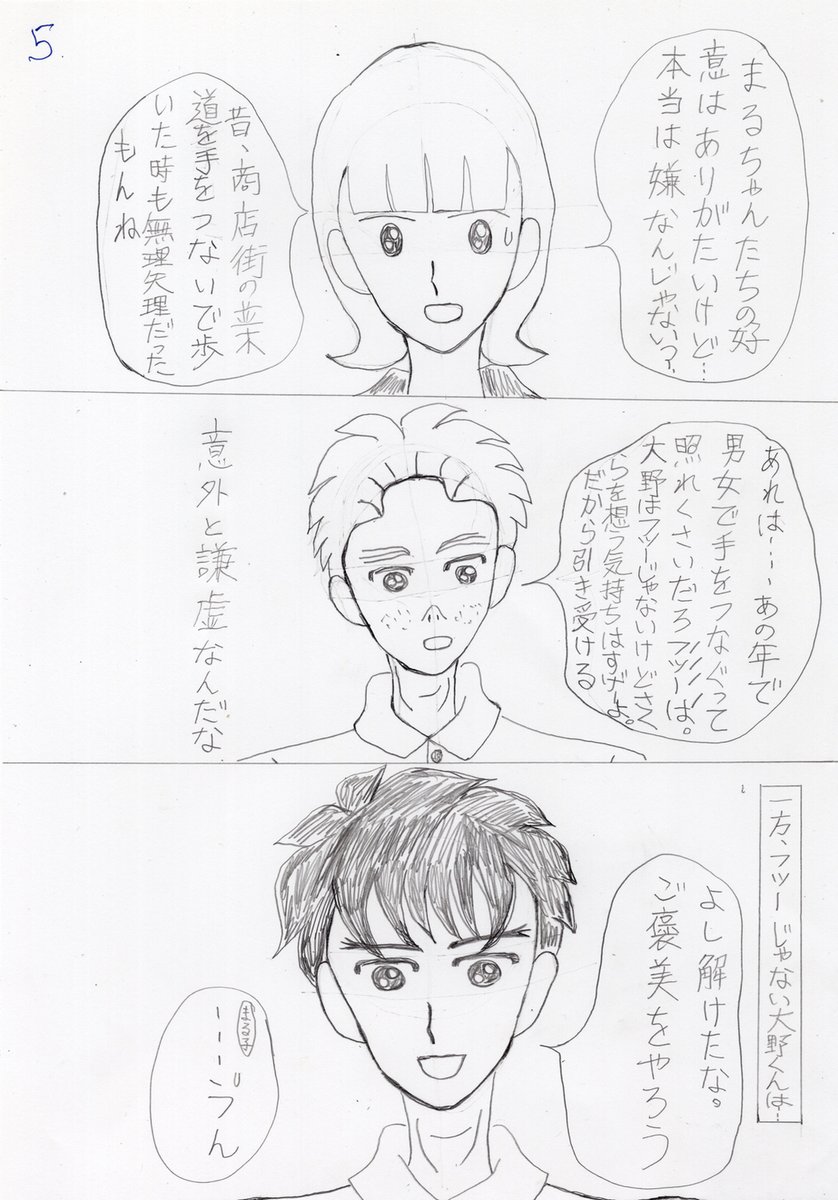 5
まるちゃんたちの好
意はありがたいけど…
本当は嫌なんじゃない?
昔、商店街の葉
道を手をつないで歩
いた時も無理矢理だった
もんね
あれは……あの年で
男女で手をつなぐって
照れくさいだろフツーは。
大野はフツーじゃないけどさく
らを想う気持ちはすげーよ。
だから引き受ける
意外と謙虚なんだな
一方、フツーじゃない大野くんは…
よし解けたな。
ご褒美をやろう
まる子
……ゔん